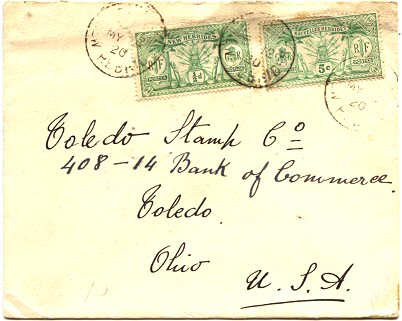 NEW HEBRIDES
RF
½d
NOUVELLES HEBRIDES
5c
RF
MY
20
Toledo Stamp Co
408-14 Bank of Commerce.
Toledo.
Ohio
U.S.A.